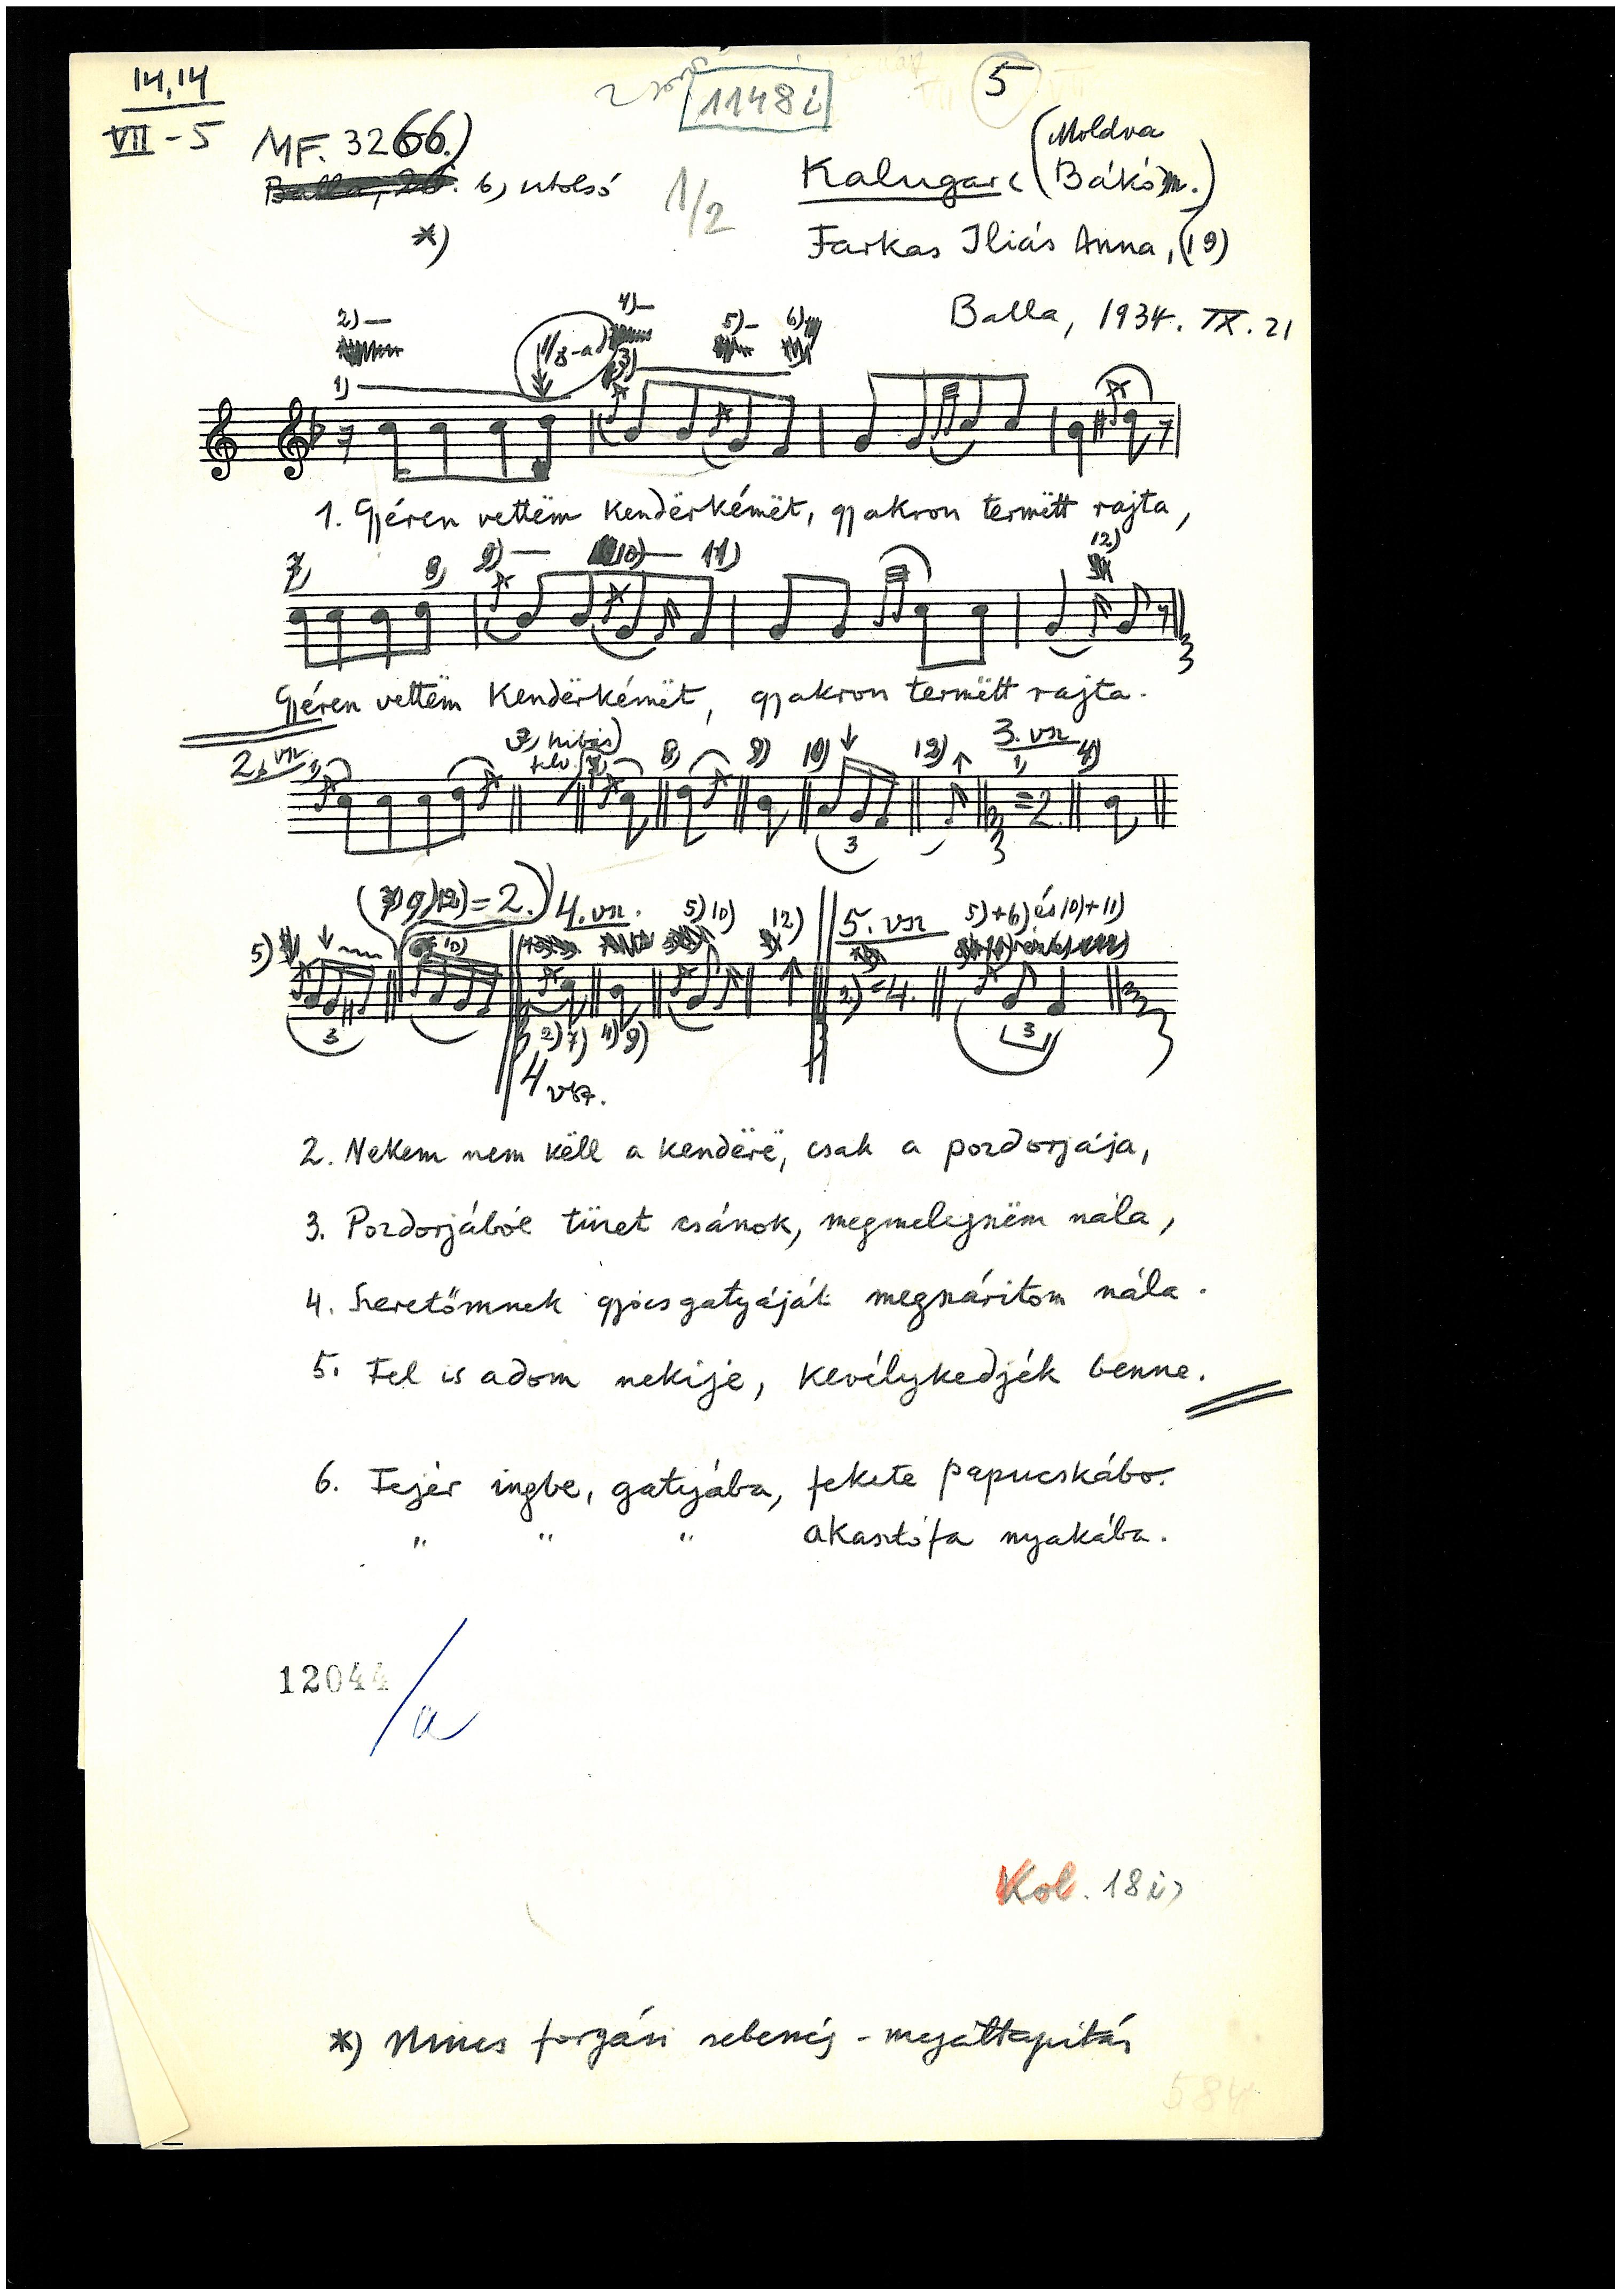 14,14
VII - 5
1148i
5
MF. 3266.)
b) utolsó
1/2
*)
Kalugar (Moldva Bákó m.)
Farkas Iliás Anna, (19)
Balla, 1934. IX. 21
2)— 4)— 5)— 6)
1) 1/8-a) 3)
1. Gyéren vettëm kendërkémët, gyakron termëtt rajta,
7) 8) 9)— 10)— 11) 12)
Gyéren vettëm kendërkémët, gyakron termëtt rajta.
2. vsz. 1) 7) hibás 8) 9) 10) 12) 3. vsz 1) 4)
3 =2
9) 12) = 2.) 4. vsz. 5) 10) 12) 5. vsz 5)+6) és 10)+11)
5) 10) 2) = 4.
3 2) 7) 4) 9) 3
4 vsz.
2. Nekem nem këll a kendërë, csak a pozdorjája,
3. Pozdorjából tüzet csánok, megmelegszëm nála,
4. Szeretőmnek gyócsgatyáját megszáritom nála.
5. Fel is adom nekije, kevélykedjék benne.
6. Fejér ingbe, gatyába, fekete papucskábo.
" " " akasztófa nyakába.
12044/a
Kol. 18i)
*) Nincs forgási sebesség-megállapítás
584